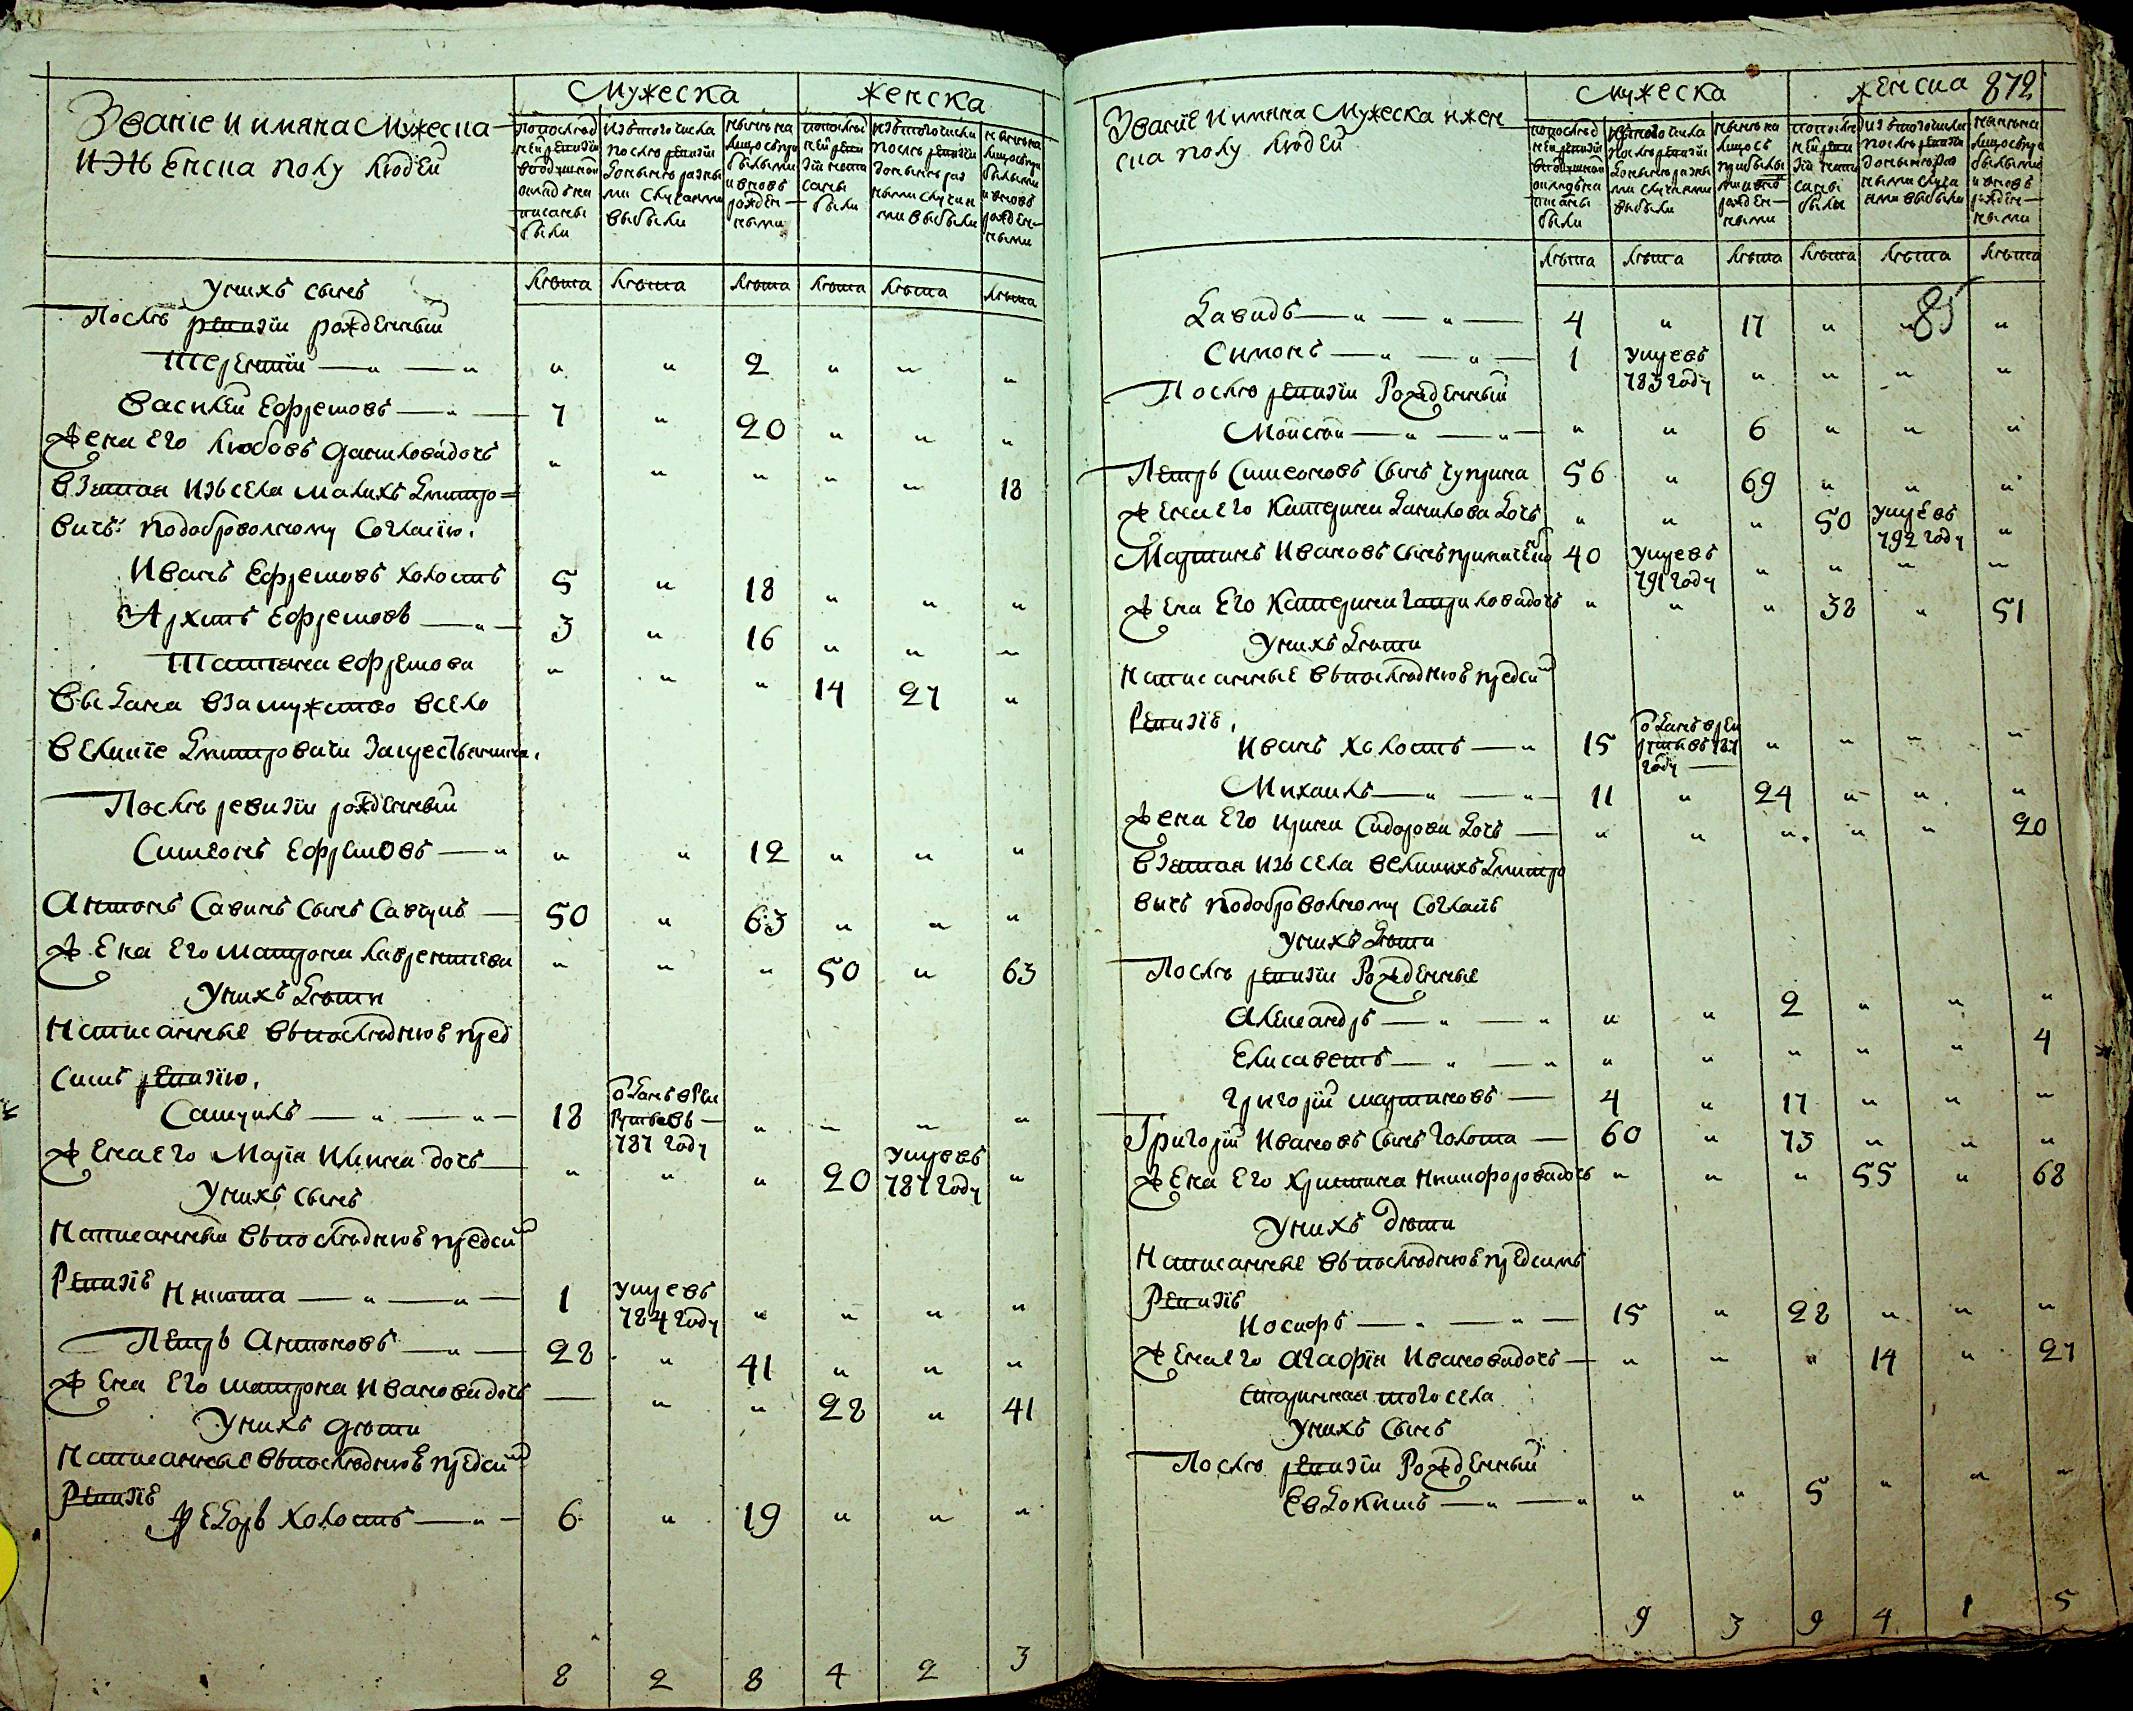 Званіе и имяна Мужеска
и Женска полу людей
Мужеска
Женска
по послед
ней ревизіи
в подушной
окладъ на
писаны
были
изъ того числа
после ревизіи
до нынѣ разны
ми случаями
выбыли
ныне на
лицо съ при
былыми
и вновь
рожден
ными
по послед
ней реви
зіи напи
саны
были
изъ того числа
после ревизіи
до нынѣ раз
ными случая
ми выбыли
ныне на
лицо съ при
былыми
и вновь
рожден
ными
лѣта лѣта лѣта лѣта лѣта лѣта
У нихъ сынъ
Послѣ ревизіи рожденный
Терентій — „ — „ „ „ 2 „ „ „
Василей Ефремовъ — „ — 7 „ 20 „ „ „
Жена его Любовь Данилова дочь „ „ „ „ „ 18
взятая изъ села Малихъ Дмитро=
вичъ подоброволному согласію.
Иванъ Ефремовъ холостъ 5 „ 18 „ „ „
Архипъ Ефремовъ — „ — 3 „ 16 „ „ „
Татіяна Ефремова „ „ „ 14 27 „
выдана в замужство в село
Великіе Дмитровичи
Послѣ ревизіи рожденный
Симеонъ Ефремовъ — „ „ „ 12 „ „ „
Антонъ Савинъ сынъ Савчукъ — 50 „ 63 „ „ „
Жена его Матрона Лаврентіева „ „ „ 50 „ 63
У нихъ дѣти
Написанные въ последнюю пред
симъ ревизію.
Самуилъ — „ — „ — 18 Зданъ в ре
круты въ
787 году „ „ „ „
Жена его Марія Илина дочь — „ „ „ 20 умре въ
787 году „
У нихъ сынъ
Написанный въ последнюю предсим
Ревизіе
Никита — „ — „ — 1 умре въ
784 году „ „ „ „
Петръ Антоновъ — „ — 28 „ 41 „ „ „
Жена его Матрона Иванова дочь — „ „ 28 „ 41
У нихъ дѣти
Написанные въ последнюю предсим
Ревизіе
Федоръ холостъ — „ — 6 „ 19 „ „ „
8 2 8 4 2 3
Званіе и имяна Мужеска и жен
ска полу людей
Мужеска
женска 872
по послед
ней ревизіи
в подушной
окладъ на
писаны
были
изъ того числа
после ревизіи
до нынѣ разны
ми случаями
выбыли
ныне на
лицо съ
прибылы
ми и вновь
рожден
ными
по послед
ней реви
зіи напи
саны
были
изъ того числа
после ревизіи
до нынѣ раз
ными случа
ями выбыли
ныне на
лицо съ при
былыми
и вновь
рожден
ными
лѣта лѣта лѣта лѣта лѣта лѣта
85
Давидъ — „ — „ — 4 „ 17 „ „ „
Симонъ — „ — „ — 1 умре въ
783 году „ „ „ „
Послѣ ревизіи Рожденный
Моисей — „ — „ — „ „ 6 „ „ „
Петръ Симеоновъ сынъ Чуприна 56 „ 69 „ „ „
Жена его Катерина Данилова дочь „ „ „ 50 умре въ
792 году „
Мартинъ Ивановъ сынъ 40 умре въ
791 году „ „ „ „
Жена Его Катерина Гаврилова дочь „ „ „ 38 „ 51
У нихъ дѣти
Написанные въ последнюю предсим
Ревизіе.
Иванъ холостъ — „ 15 Зданъ в рек
руты въ 787
году — „ „ „ „
Михаилъ — „ — „ — 11 „ 24 „ „ „
Жена Его Ирина Сидорова дочь — „ „ „ „ „ 20
взятая изъ села Великихъ Дмитро
вичъ подоброволному согласіе
У нихъ дѣти
Послѣ ревизіи Рожденные
Александръ — „ — „ „ „ 2 „ „ „
Елисаветъ — „ — „ „ „ „ „ „ 4
Григорій Мартиновъ — 4 „ 17 „ „ „
Григорій Ивановъ сынъ Голота — 60 „ 73 „ „ „
Жена Его Христина Никифорова дочь „ „ „ 55 „ 68
У нихъ дѣти
Написанные въ последнюю предсимъ
Ревизіе
Иосифъ — „ — „ — 15 „ 28 „ „ „
Жена его Агафія Иванова дочь — „ „ „ 14 „ 27
Старинная того села
У нихъ сынъ
Послѣ ревизіи Рожденный
Евдокимъ — „ — „ „ „ 5 „ „ „
9 3 9 4 1 5